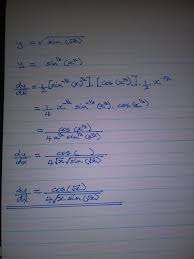 y = √sin(√x)
y = sin^½(x^½)
dy/dx = ½[sin^-½(x^½)].[cos(x^½)].½ x^-½
= ¼ x^-½ sin^-½(x^½). cos(x^½)
= cos(x^½) / 4x^½ sin^½(x^½)
dy/dx = cos( ) / 4√x√sin(√x)
dy/dx = cos(√x) / 4√x sin(√x)